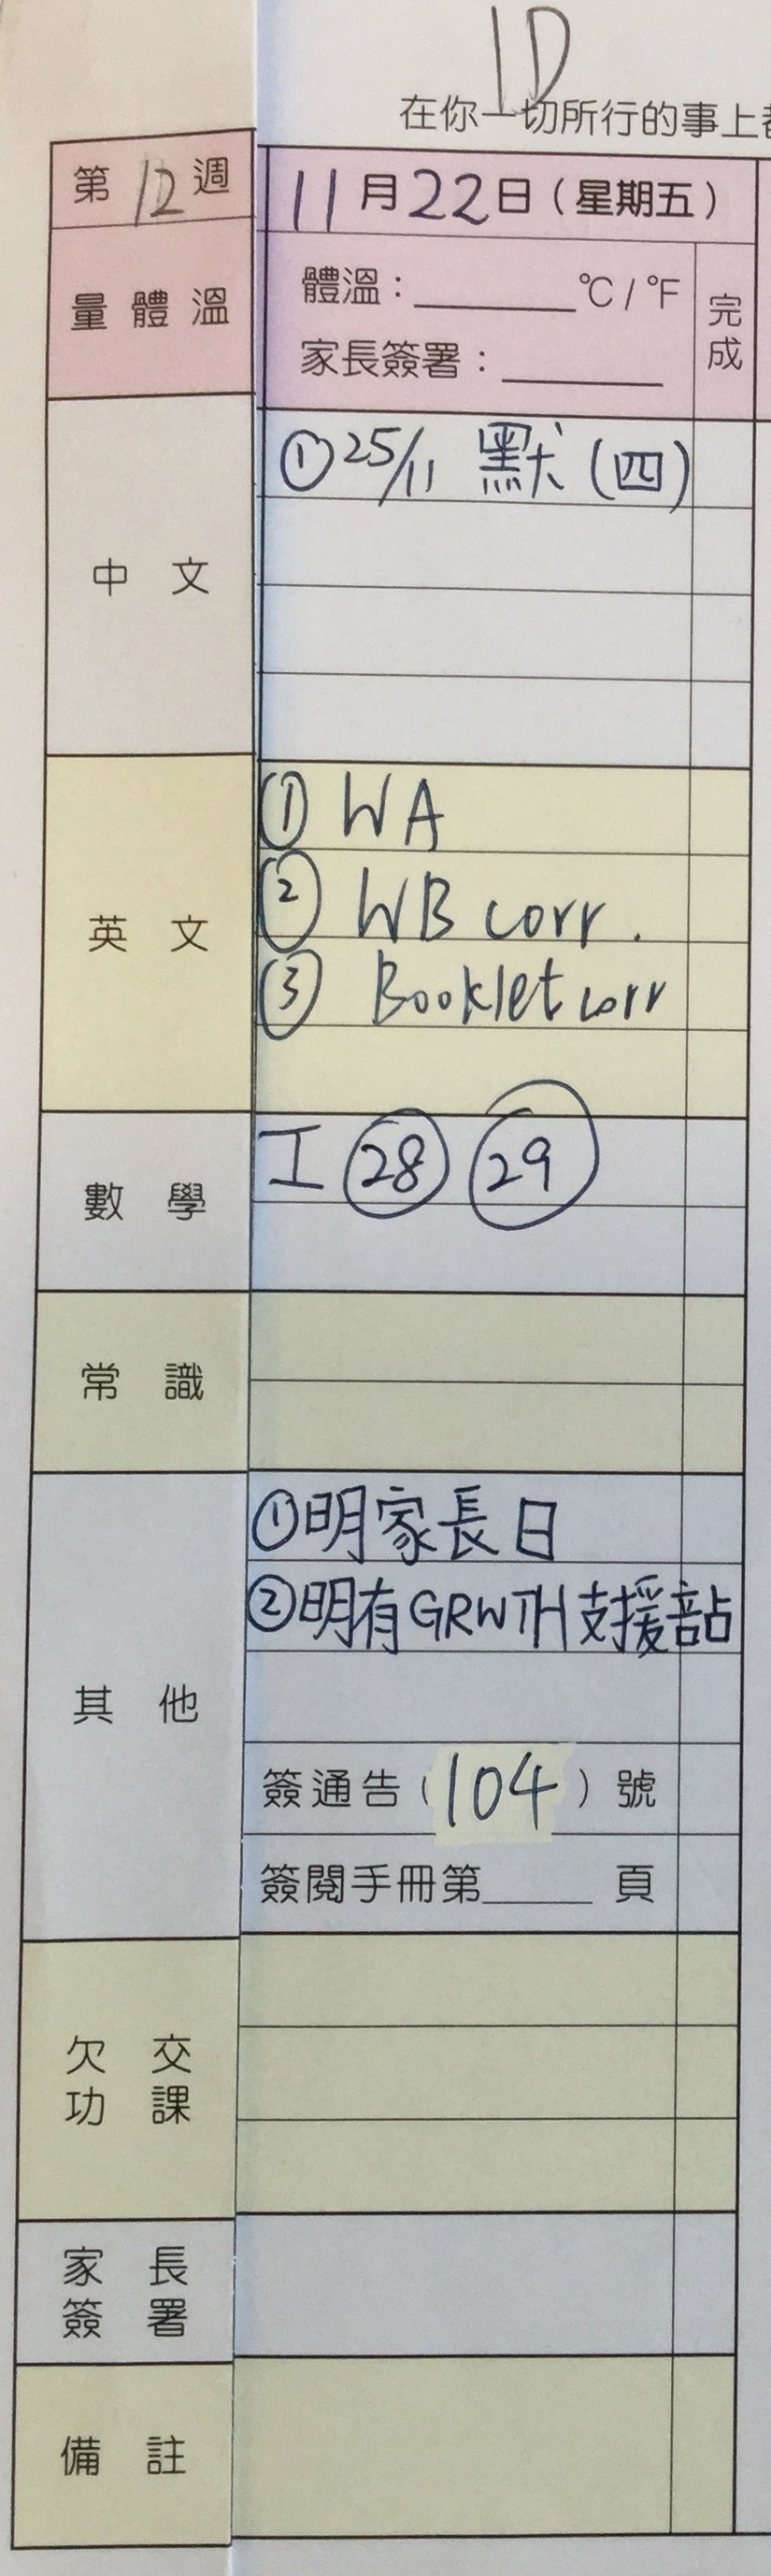 1D
在你一切所行的事上
第 12 週
11月22日（星期五）
量體溫
體溫：______℃/℉
家長簽署：______
完成
中文
① 25/11 默(四)
英文
① WA
② WB corr.
③ Booklet corr
數學
工 ㉘ ㉙
常識
其他
①明家長日
②明有GRWTH支援站
簽通告（104）號
簽閱手冊第____頁
欠交功課
家長簽署
備註